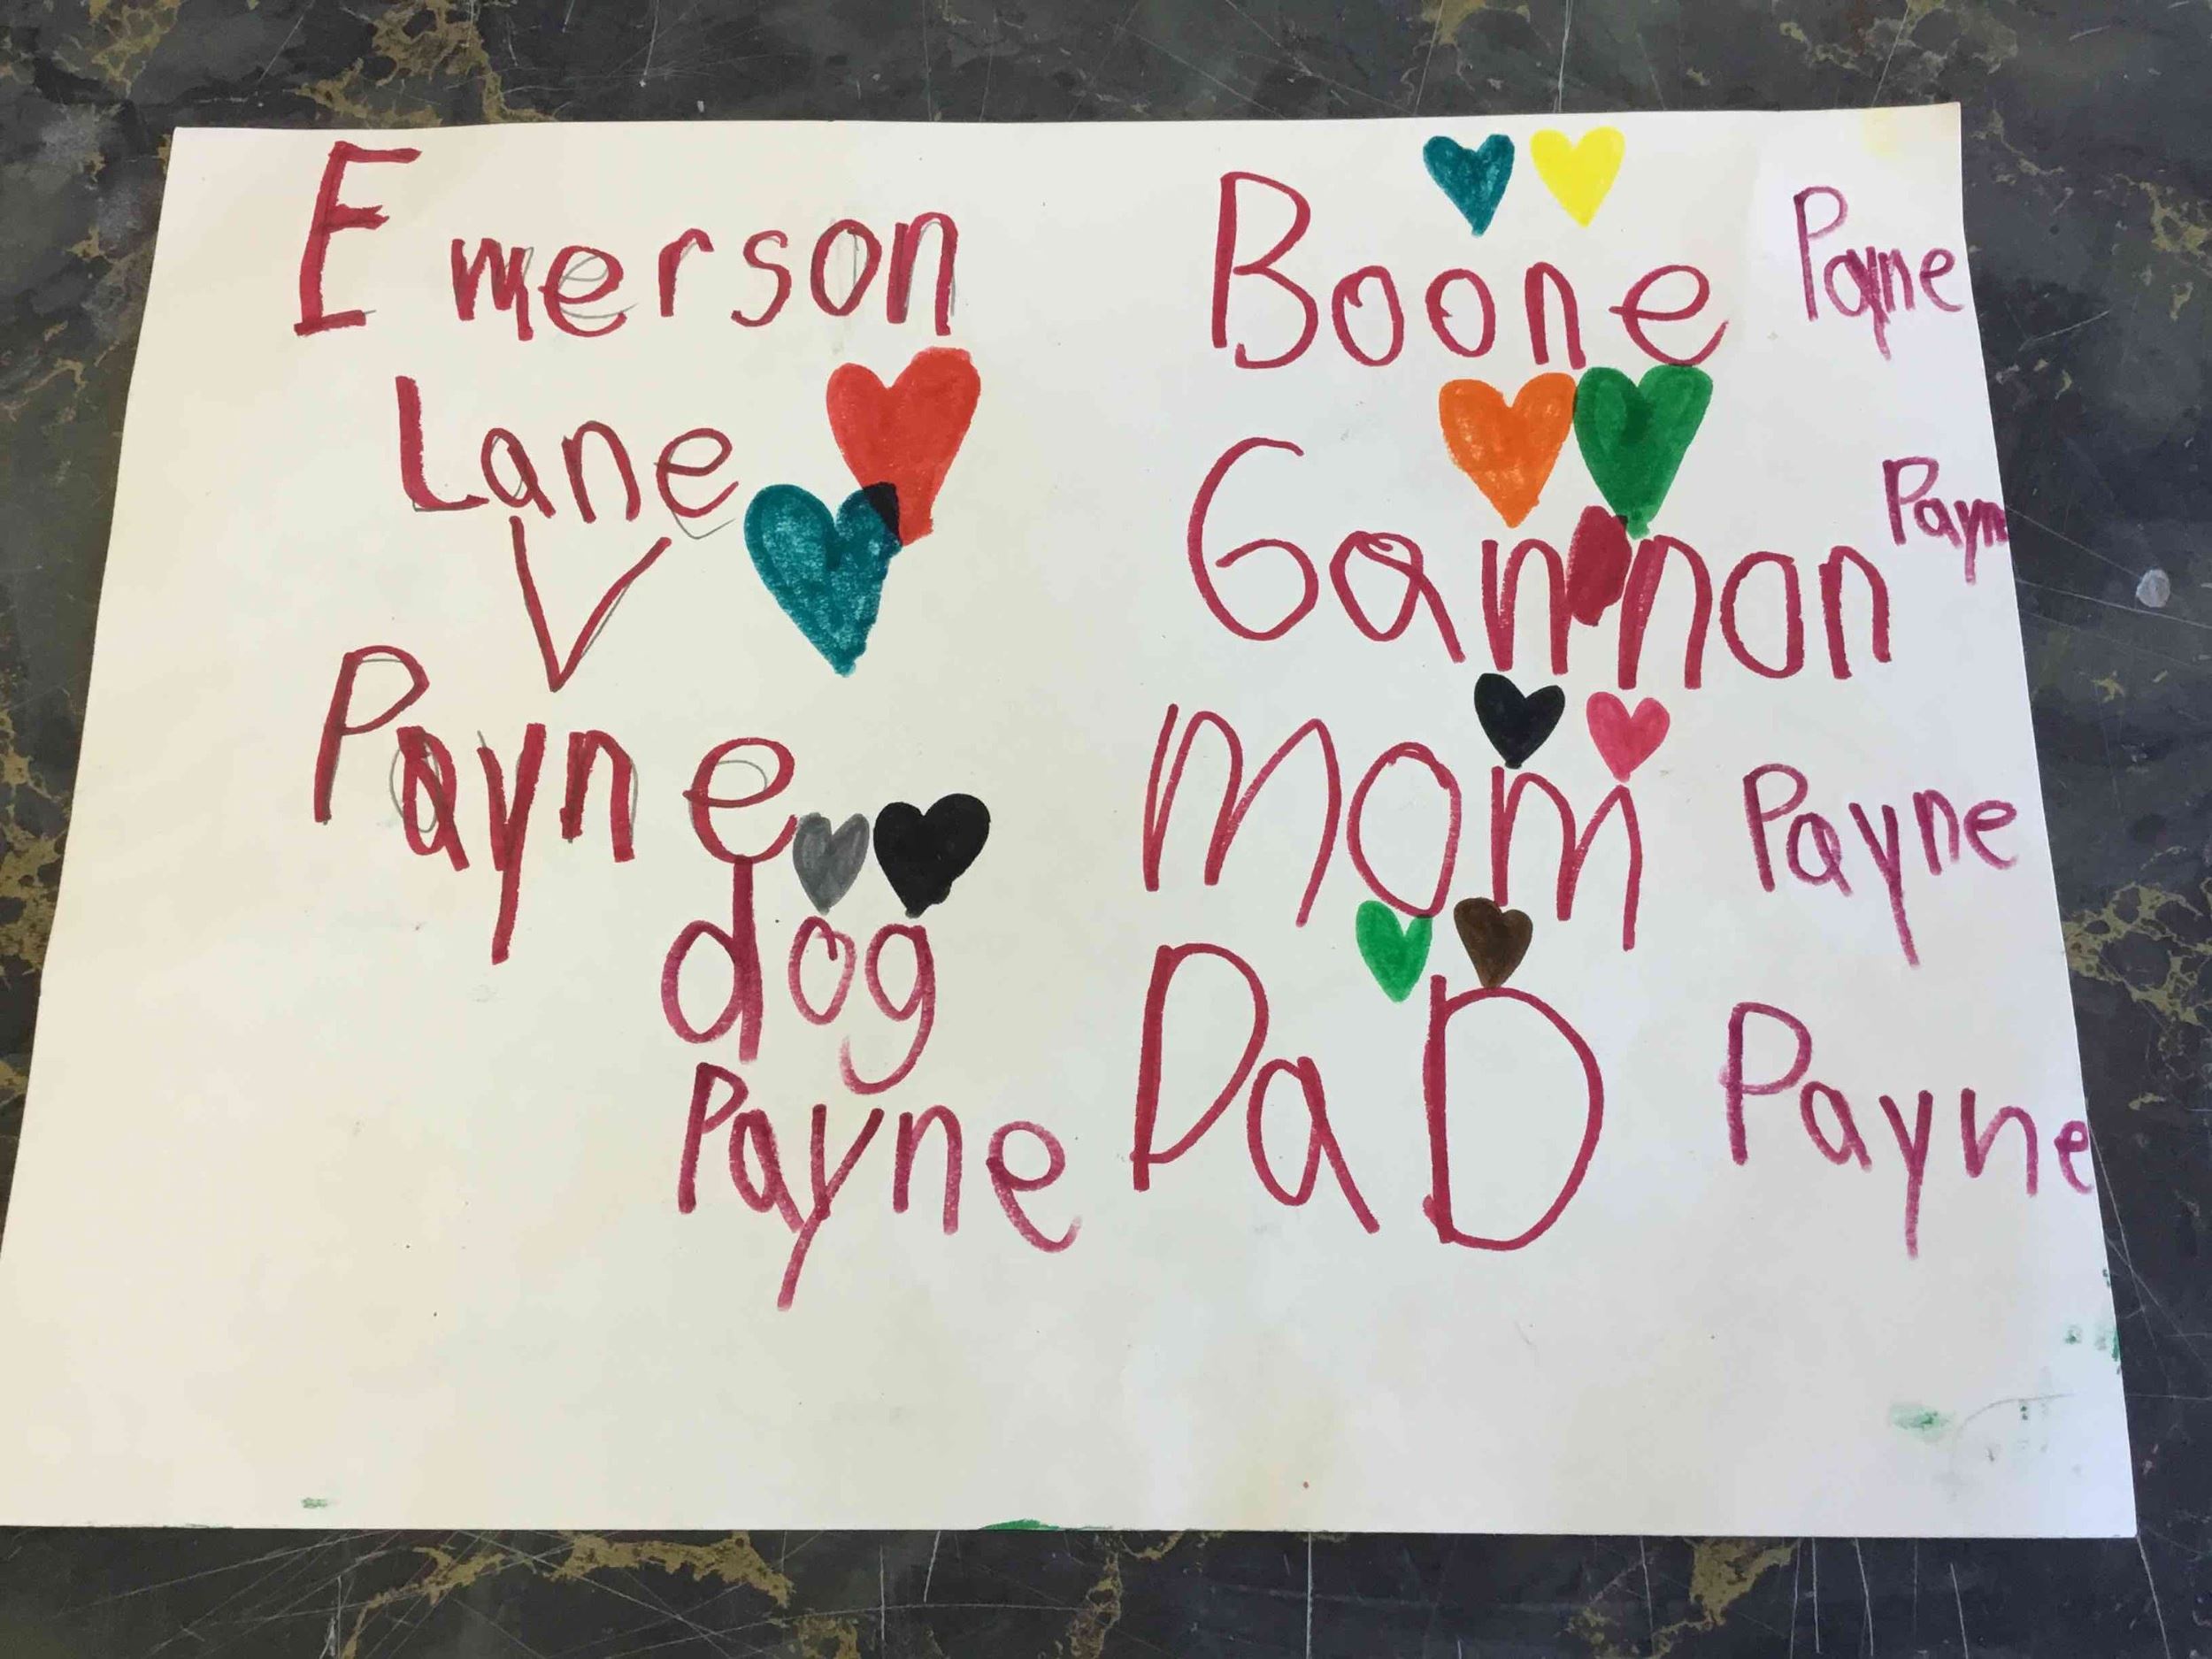 Emerson
Lane
V
Payne
dog
Payne
Boone Payne
Gannon Payn
mom Payne
DaD Payne